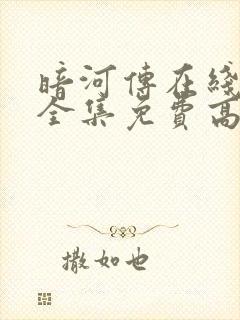 暗河傳在綫
全集免費高
撒如也